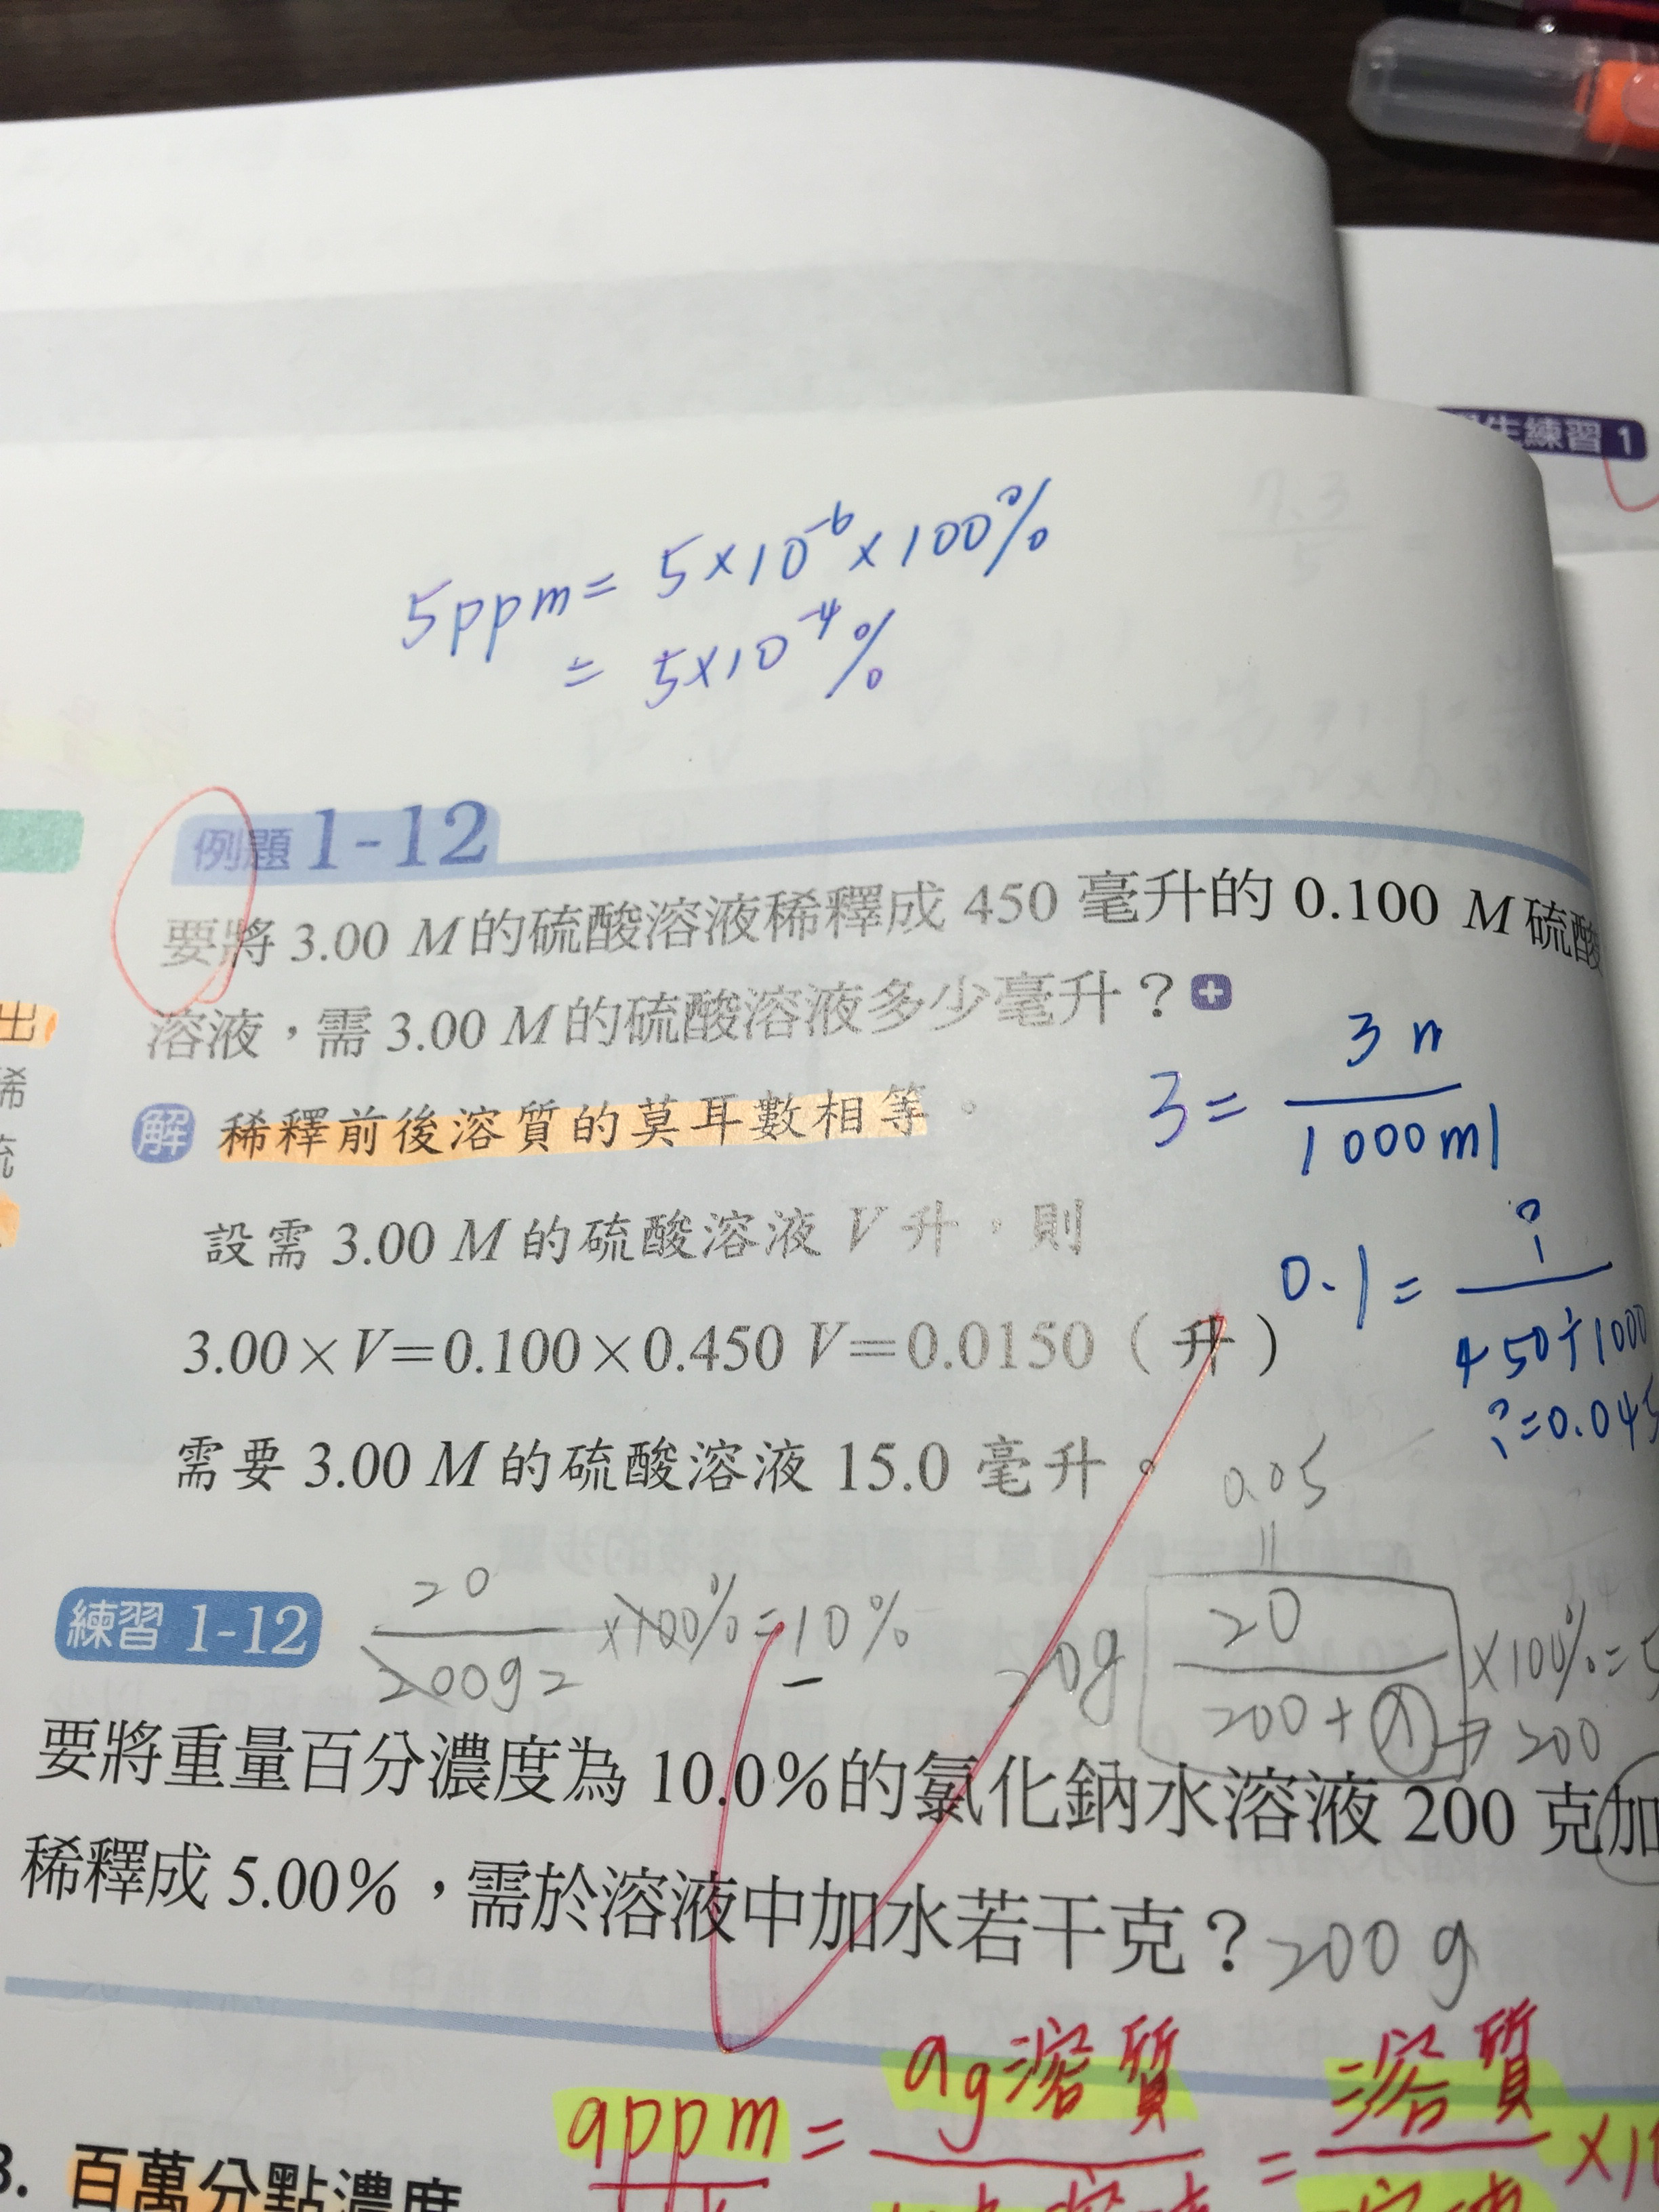 生練習 1
5ppm = 5×10⁻⁶×100%
= 5×10⁻⁴%
例題 1-12
要將 3.00 M 的硫酸溶液稀釋成 450 毫升的 0.100 M 硫酸
溶液，需 3.00 M 的硫酸溶液多少毫升？
3 = 3n / 1000ml
解 稀釋前後溶質的莫耳數相等。
設需 3.00 M 的硫酸溶液 V 升，則
0.1 = ? / 450÷1000
?=0.045
3.00×V=0.100×0.450 V=0.0150（升）
需要 3.00 M 的硫酸溶液 15.0 毫升。
0.05
練習 1-12
20 / 200g ×100% = 10%
20g 20 / 200+ ×100% = 5
200
要將重量百分濃度為 10.0%的氯化鈉水溶液 200 克加
稀釋成 5.00%，需於溶液中加水若干克？200g
appm = ag溶質 = 溶質 ×10
3. 百萬分點濃度
出
稀